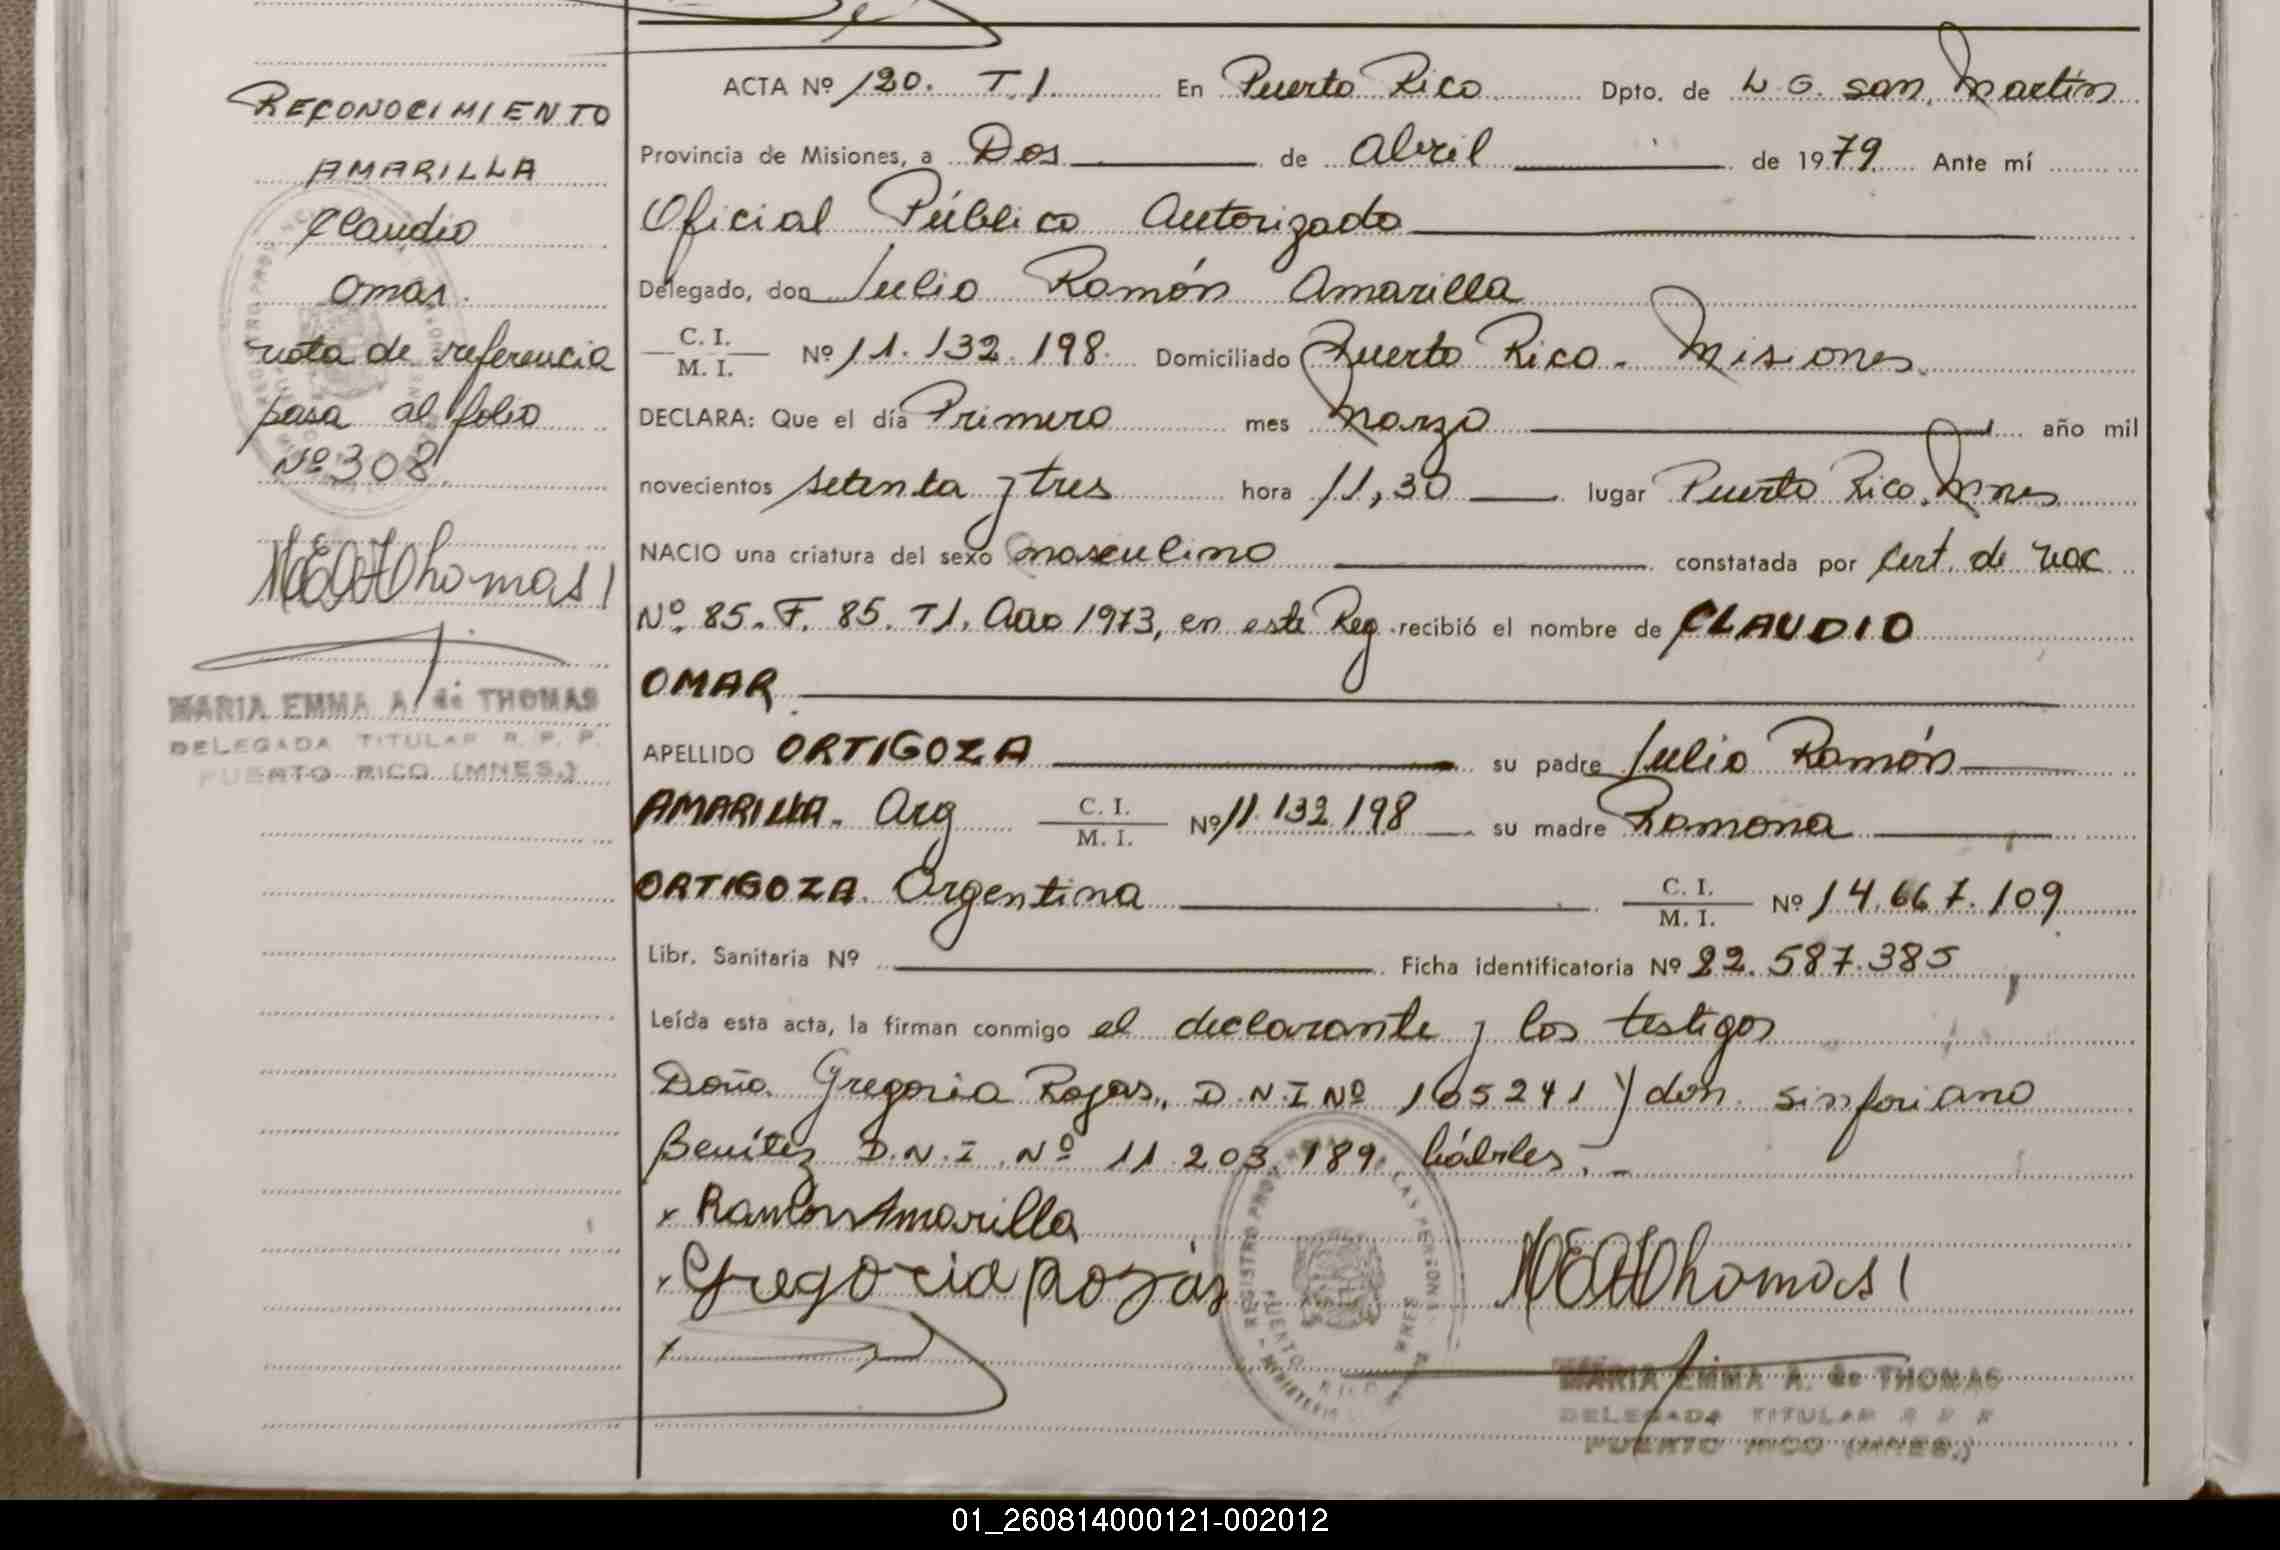 RECONOCIMIENTO
AMARILLA
Claudio
Omar.
nota de referencia
pasa al folio
Nº 308.
MEAThomas
MARIA EMMA A. de THOMAS
DELEGADA TITULAR R. P. P.
PUERTO RICO (MNES.)
ACTA Nº 120. T.1. En Puerto Rico Dpto. de L. G. San Martín
Provincia de Misiones, a Dos de Abril de 1979. Ante mí
Oficial Público Autorizado
Delegado, don Julio Ramón Amarilla
C. I.
M. I. Nº 11.132.198. Domiciliado Puerto Rico - Misiones
DECLARA: Que el día Primero mes Marzo año mil
novecientos setenta y tres hora 11,30 lugar Puerto Rico. Mnes
NACIO una criatura del sexo masculino constatada por Cert. de nac
Nº 85. F. 85. T1. Año 1973, en este Reg. recibió el nombre de CLAUDIO
OMAR
APELLIDO ORTIGOZA su padre Julio Ramón
AMARILLA. Arg C. I.
M. I. Nº 11.132.198 su madre Ramona
ORTIGOZA. Argentina C. I.
M. I. Nº 14.667.109
Libr. Sanitaria Nº Ficha identificatoria Nº 22.587.385
Leída esta acta, la firman conmigo el declarante y los testigos
Doña. Gregoria Rojas., D.N.I Nº 165241 y don. Sinforiano
Benítez D.N.I. Nº 11.203.189. hábiles. -
x Ramon Amarilla
x Gregoria Rojas
x
MEAThomas
MARIA EMMA A. de THOMAS
DELEGADA TITULAR R P P
PUERTO RICO (MNES.)
01_260814000121-002012